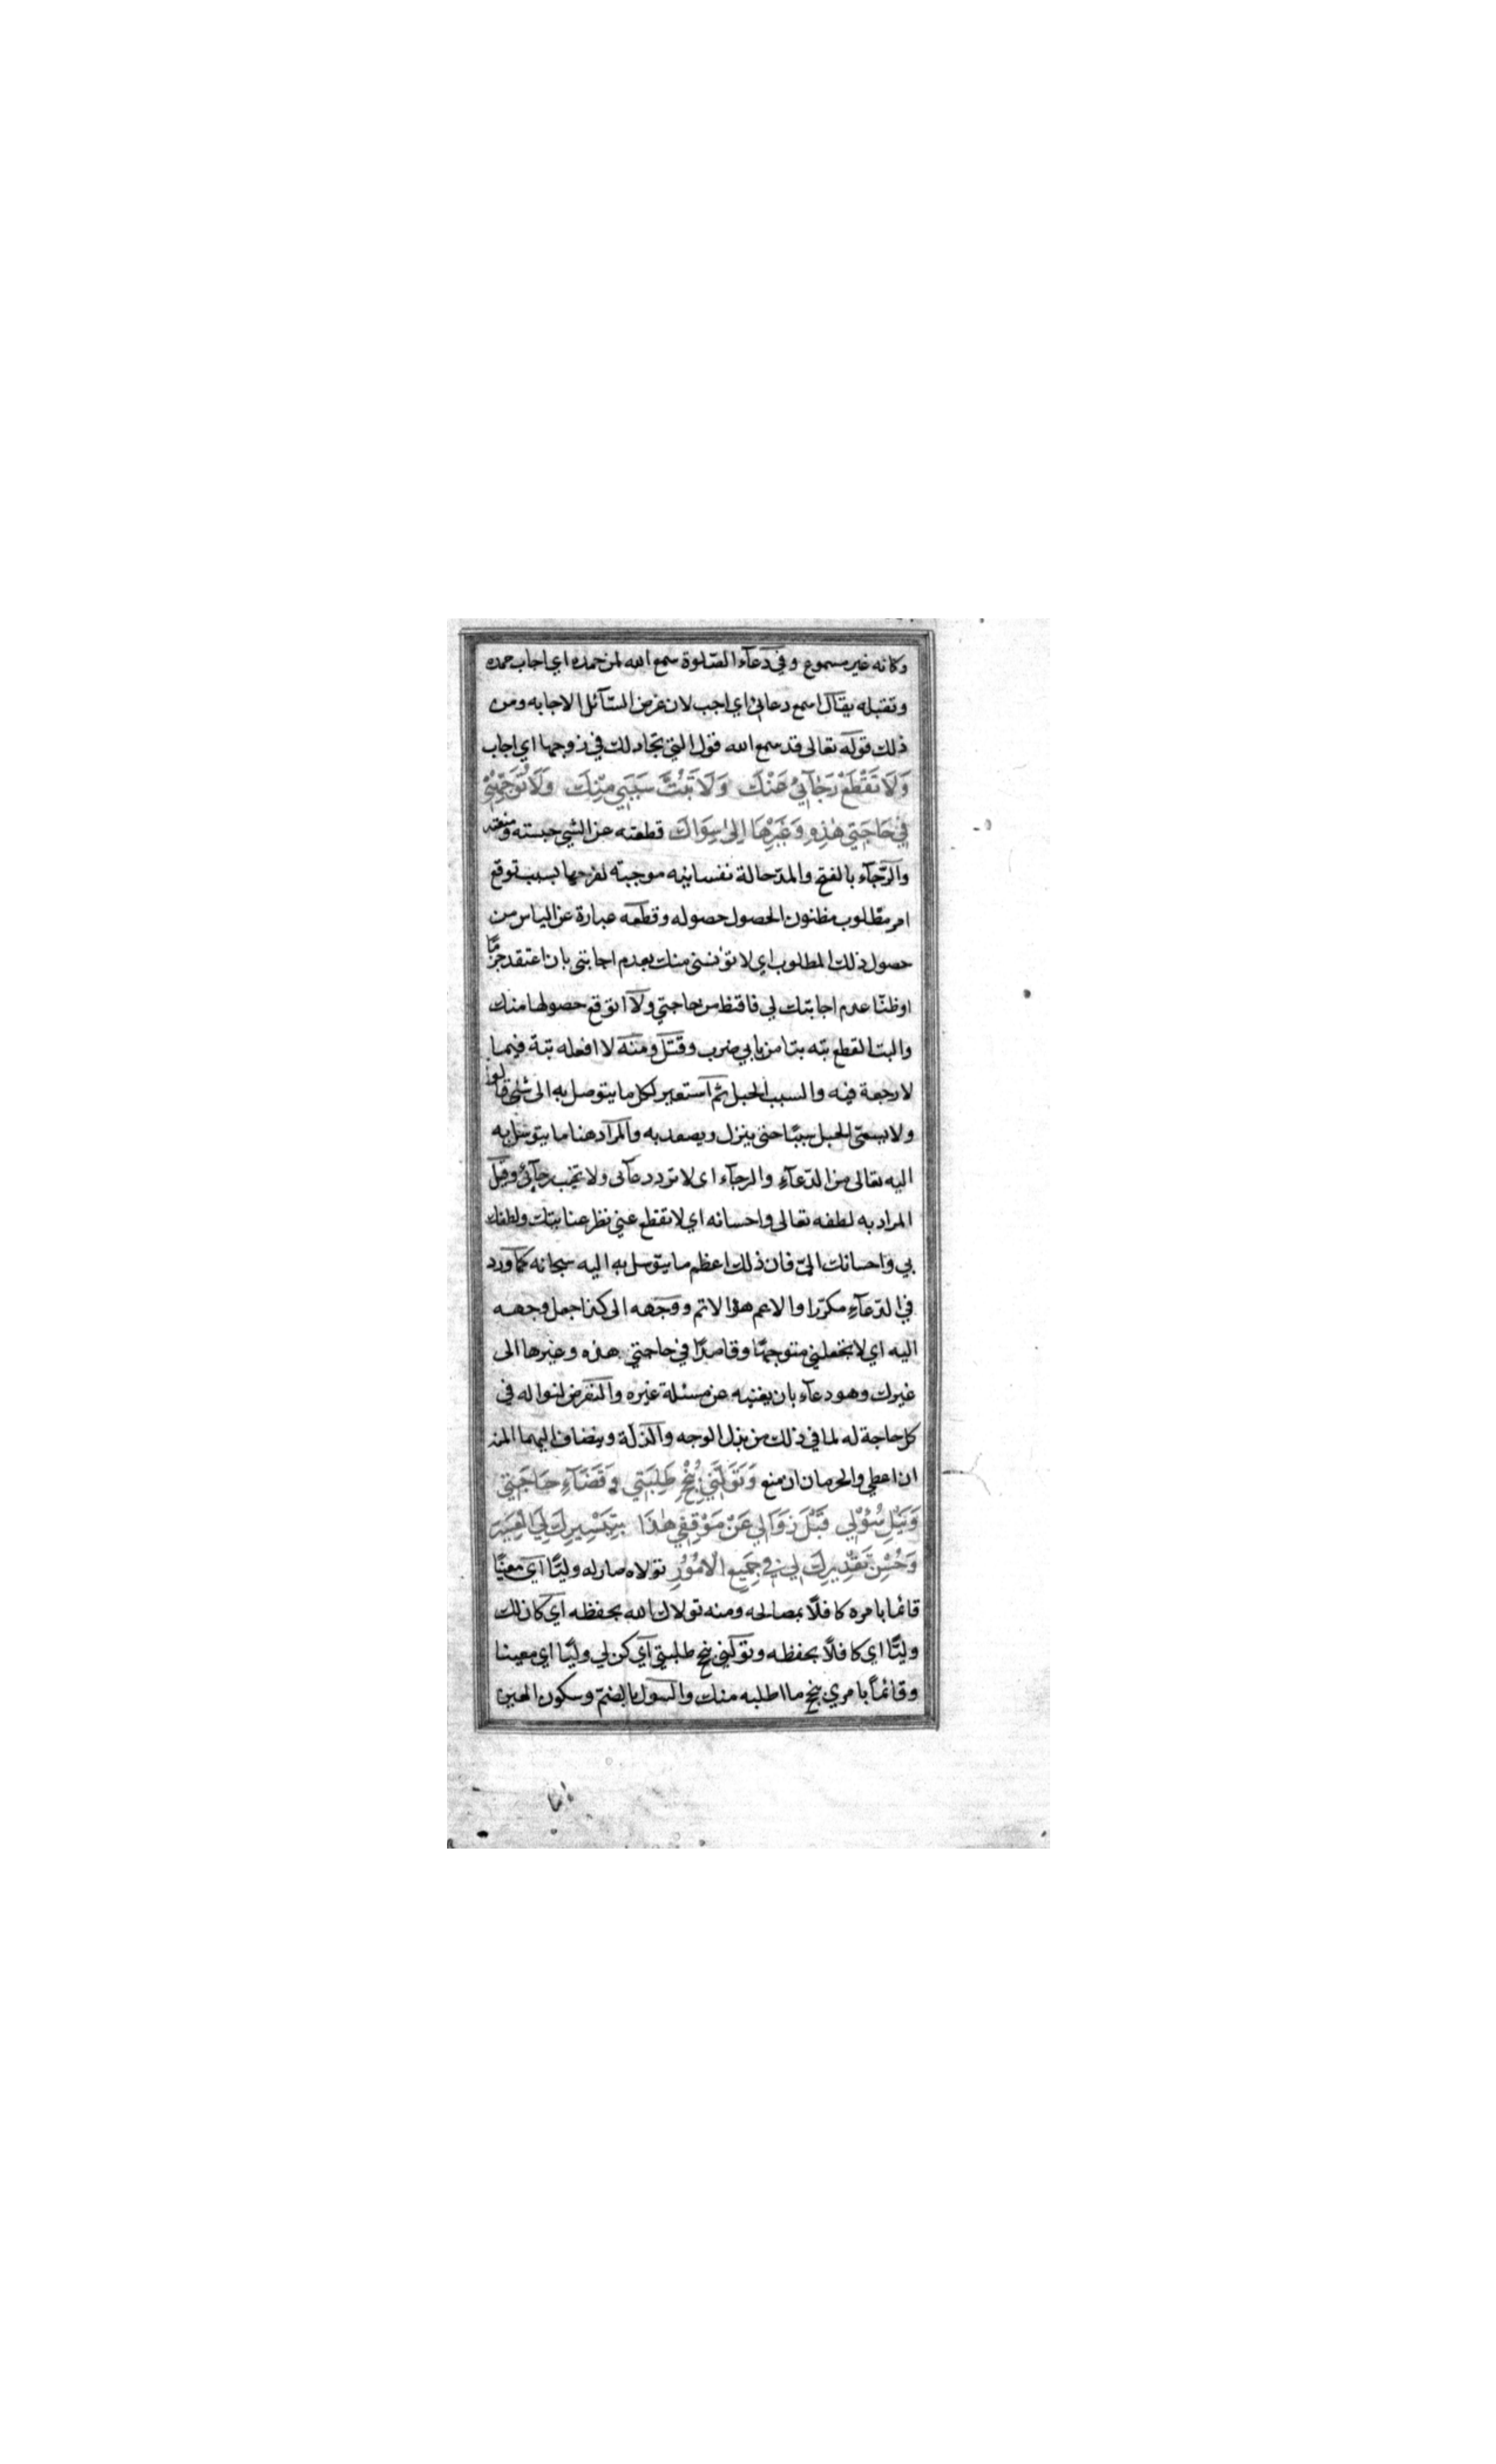 وكانه غير مسموع وفي دعآء الصّلوة سمع الله لمن حمده اي اجاب حمده
وتقبله يقال اسمع دعائي اي اجب لان غرض السّآئل الاجابه ومن
ذلك قوله تعالى قد سمع الله قول التي تجادلك في زوجها اي اجاب
وَلَا تَقْطَعْ رَجَآئِي عَنْكَ وَلَا تَبُتَّ سَبَبِي مِنْكَ وَلَا تُوَجِّهْنِي
فِي حَاجَتِي هٰذِهِ وَغَيْرِهَا اِلىٰ سِوَاكَ قطعته عن الشي حبسته ومنعته
والرّجآء بالفتح والمدّ حالة نفسانيه موجبة لفرحها بسبب توقع
امر مطلوب مظنون الحصول حصوله وقطعه عبارة عن الياس من
حصول ذلك المطلوب اي لا تؤيسني منك بعدم اجابتي بان اعتقد جزمًا
اوظنّا عدم اجابتك لي فاقنط من حاجتي ولا اتوقع حصولها منك
والبت القطع بته بتا من بابي ضرب وقتل ومنه لا افعله بتة فيما
لا رجعة فيه والسبب الحبل ثم استعير لكل ما يتوصل به الى شئ قالوا
ولا يسمّى الحبل سببًا حتى ينزل ويصعد به والمراد هنا ما يتوسل به
اليه تعالى من الدّعآء والرجآء اى لا تردد دعآئى ولا تخيب رجآئي وقيل
المراد به لطفه تعالى واحسانه اي لا تقطع عني نظر عنايتك ولطفك
بي واحسانك الىّ فان ذلك اعظم ما يتوسل به اليه سبحانه كما ورد
في الدّعآء مكرّرا والاعم هو الاتم ووجهه الى كذا جعل وجهه
اليه اي لا تجعلني متوجهًا وقاصدًا في حاجتي هذه وغيرها الى
غيرك وهو دعآء بان يغنيه عن مسئلة غيره والتعرض لنواله في
كل حاجة له لما في ذلك من بذل الوجه والذلّة ويضاف اليهما المن
ان اعطي والحرمان ان منع وَتَوَلَّنِي بِنُجْحِ طَلِبَتِي وَقَضَآءِ حَاجَتِي
وَنَيْلِ سُؤْلِي قَبْلَ زَوَالِي عَنْ مَوْقِفِي هٰذَا بِتَيْسِيرِكَ لِيَ الْعَسِيرَ
وَحُسْنِ تَقْدِيرِكَ لِي فِي جَمِيعِ الْاُمُورِ تولاه صار له وليًّا اي معينًا
قائما بامره كافلًا بمصالحه ومنه تولاك الله بحفظه اي كان لك
وليًّا اي كافلًا بحفظه وتولّني بنجح طلبتي اي كن لي وليًّا اي معينا
وقائمًا بامري بنجح ما اطلبه منك والسول بالضمّ وسكون العين